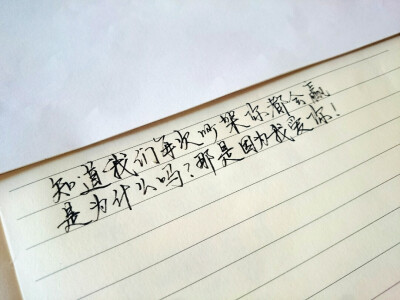 知道我们每次吵架你都会赢
是为什么吗?那是因为我爱你!